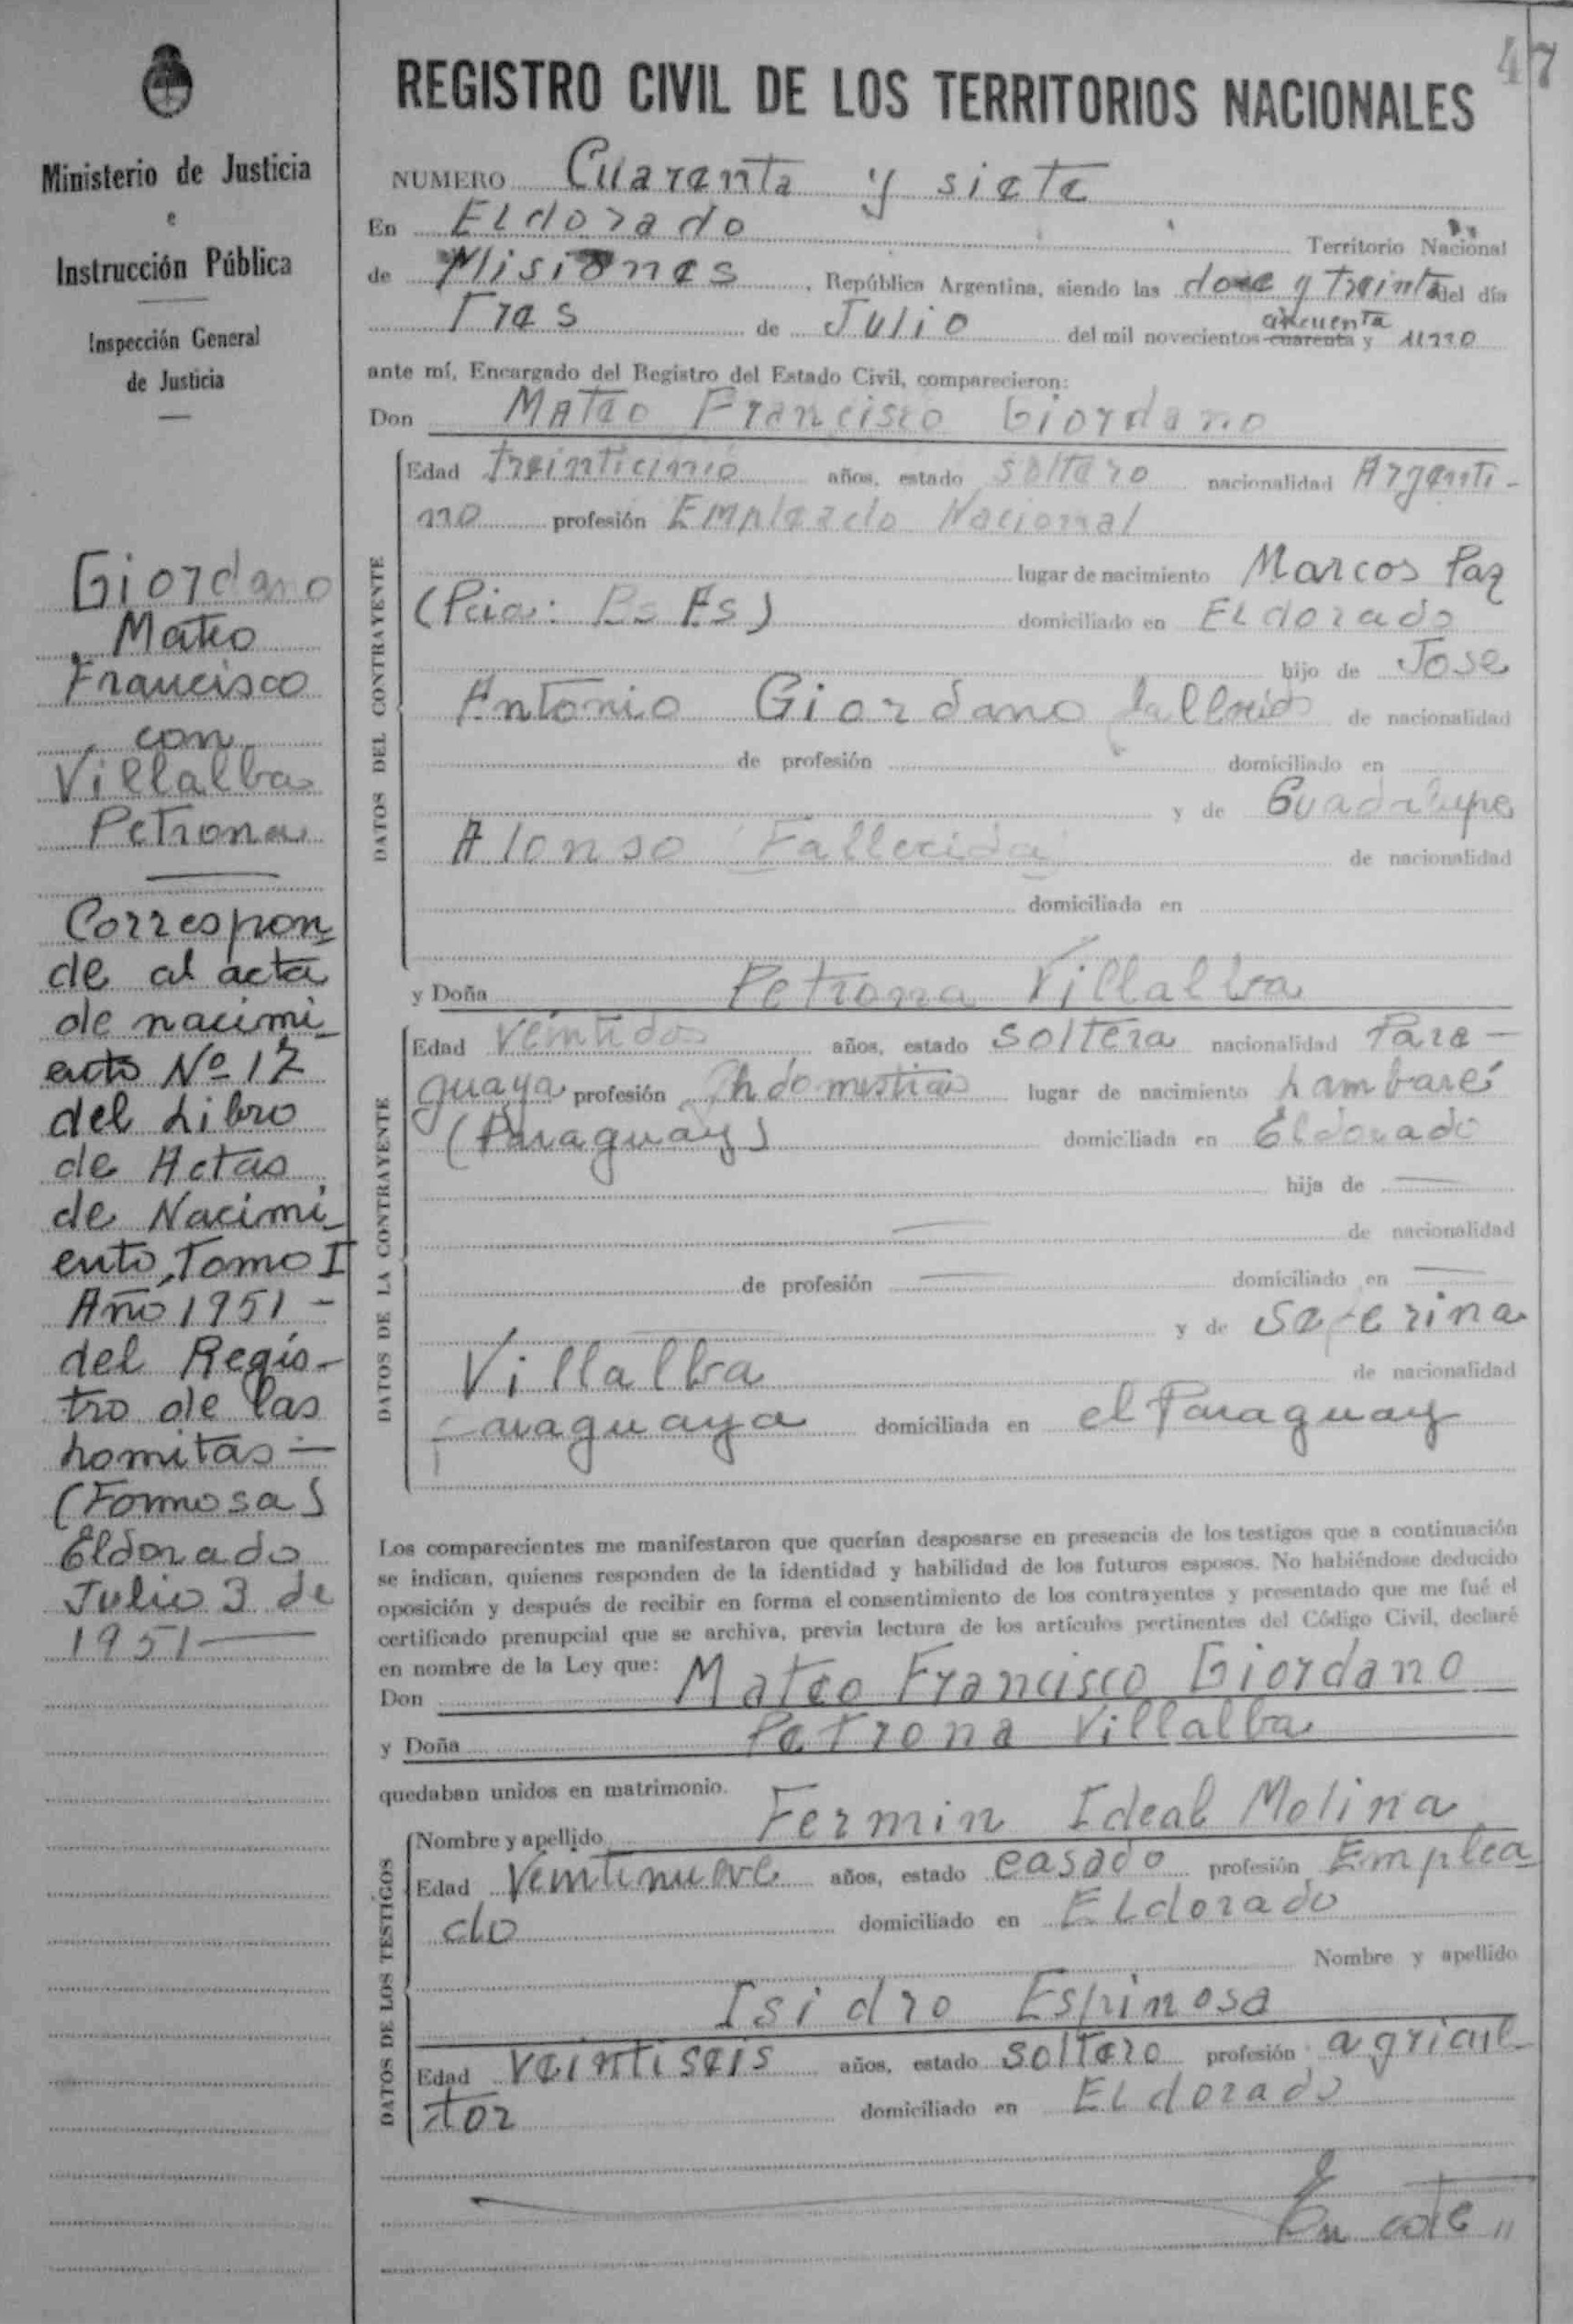 47
Ministerio de Justicia
e
Instrucción Pública
Inspección General
de Justicia
Giordano
Mateo
Francisco
con
Villalba
Petrona
Correspon-
de al acta
de nacimi-
ento Nº 12
del Libro
de Actas
de Nacimi-
ento, Tomo I
Año 1951 -
del Regis-
tro de las
Lomitas -
(Formosa)
Eldorado
Julio 3 de
1951
REGISTRO CIVIL DE LOS TERRITORIOS NACIONALES
NUMERO Cuarenta y siete
En Eldorado Territorio Nacional
de Misiones, República Argentina, siendo las doce y treinta del día
Tres de Julio del mil novecientos cuarenta cincuenta y uno
ante mí, Encargado del Registro del Estado Civil, comparecieron:
Don Mateo Francisco Giordano
DATOS DEL CONTRAYENTE
Edad treinticinco años, estado soltero nacionalidad Argenti-
no profesión Empleado Nacional
lugar de nacimiento Marcos Paz
(Pcia: Bs As) domiciliado en Eldorado
hijo de Jose
Antonio Giordano fallecido de nacionalidad
de profesión domiciliado en
y de Guadalupe
Alonso Fallecida de nacionalidad
domiciliada en
y Doña Petrona Villalba
DATOS DE LA CONTRAYENTE
Edad Veintidos años, estado soltera nacionalidad Para-
guaya profesión domesticos lugar de nacimiento Lambaré
(Paraguay) domiciliada en Eldorado
hija de
de nacionalidad
de profesión domiciliado en
y de Seferina
Villalba de nacionalidad
Paraguaya domiciliada en el Paraguay
Los comparecientes me manifestaron que querían desposarse en presencia de los testigos que a continuación
se indican, quienes responden de la identidad y habilidad de los futuros esposos. No habiéndose deducido
oposición y después de recibir en forma el consentimiento de los contrayentes y presentado que me fué el
certificado prenupcial que se archiva, previa lectura de los artículos pertinentes del Código Civil, declaré
en nombre de la Ley que:
Don Mateo Francisco Giordano
y Doña Petrona Villalba
quedaban unidos en matrimonio.
DATOS DE LOS TESTIGOS
Nombre y apellido Fermin Ideal Molina
Edad Veintinueve años, estado casado profesión Emplea
do domiciliado en Eldorado
Nombre y apellido
Isidro Espinosa
Edad veintiseis años, estado soltero profesión agricul-
tor domiciliado en Eldorado
En este "